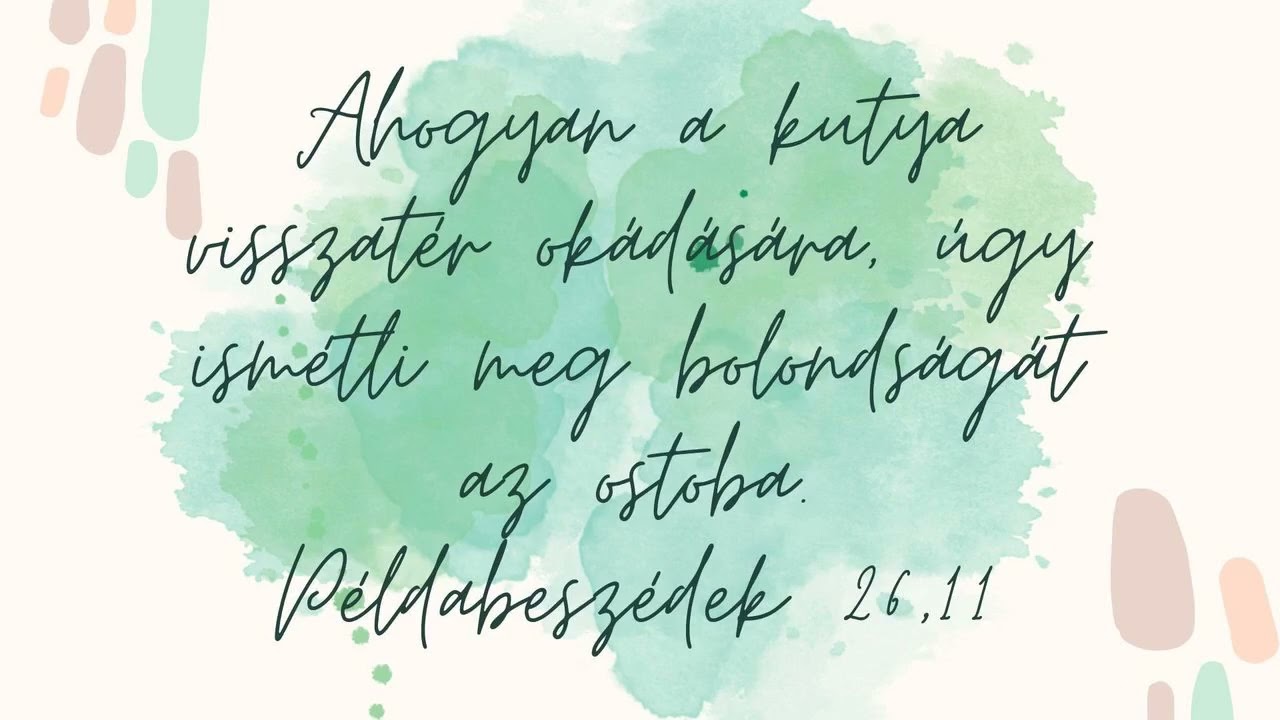 Ahogyan a kutya
visszatér okádására, úgy
ismétli meg bolondságát
az ostoba.
Példabeszédek 26,11